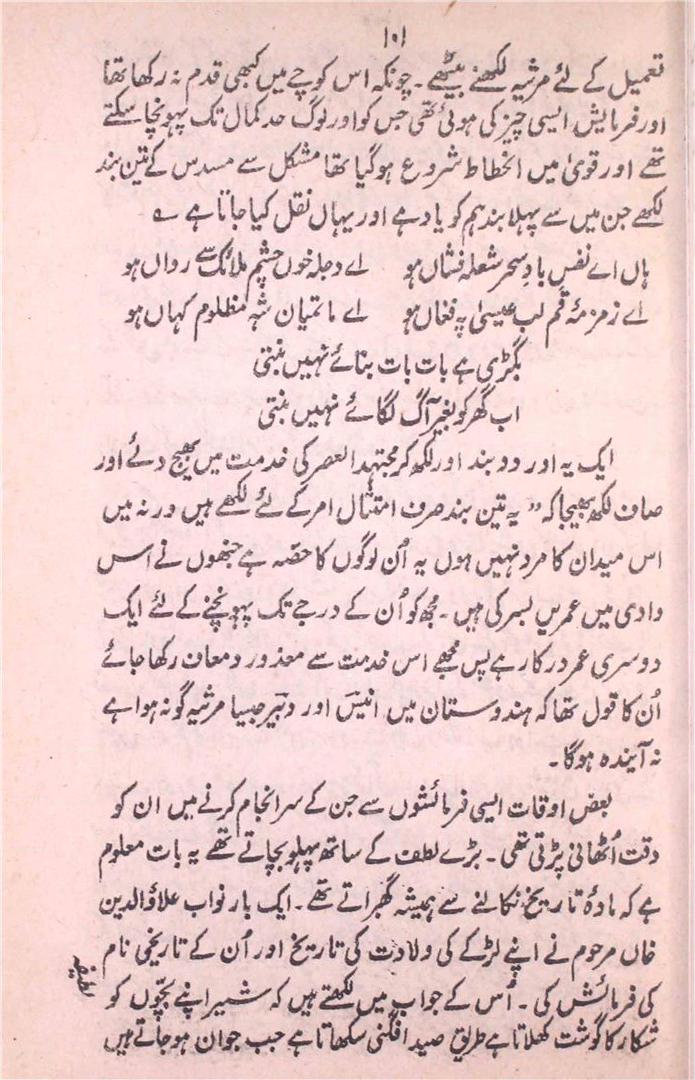 ۱۰۱
تعمیل کے لئے مرثیہ لکھنے بیٹھے۔ چونکہ اس کوچے میں کبھی قدم نہ رکھا تھا
اور فرمایش ایسی چیز کی ہوئی تھی جس کو اور لوگ حد کمال تک پہونچا سکتے
تھے اور قویٰ میں انحطاط شروع ہوگیا تھا مشکل سے مسدس کے تین بند
لکھے جن میں سے پہلا بند ہم کو یاد ہے اور یہاں نقل کیا جاتا ہے ؎
ہاں اے نفس باد سحر شعلہ فشاں ہو اے دجلہ خوں چشم ملائک سے رواں ہو
اے زمزمۂ قم لب عیسیٰ پہ فغاں ہو اے ماتمیان شہ مظلوم کہاں ہو
بگڑی ہے بات بات بنائے نہیں بنتی
اب گھر کو بغیر آگ لگائے نہیں بنتی
ایک یہ اور دو بند اور لکھ کر مجتہد العصر کی خدمت میں بھیج دئے اور
صاف لکھ بھیجا کہ ”یہ تین بند صرف امتثال امر کے لئے لکھے ہیں ورنہ میں
اس میدان کا مرد نہیں ہوں یہ اُن لوگوں کا حصّہ ہے جنھوں نے اس
وادی میں عمریں بسر کی ہیں۔ مجھ کو اُن کے درجے تک پہونچنے کے لئے ایک
دوسری عمر درکار ہے پس مجھے اس خدمت سے معذور و معاف رکھا جائے
اُن کا قول تھا کہ ہندوستان میں انیسؔ اور دبیرؔ جیسا مرثیہ گو نہ ہوا ہے
نہ آیندہ ہوگا۔
بعض اوقات ایسی فرمائشوں سے جن کے سرانجام کرنے میں ان کو
دقت اُٹھانی پڑتی تھی۔ بڑے لطف کے ساتھ پہلو بچاتے تھے یہ بات معلوم
ہے کہ مادۂ تاریخ نکالنے سے ہمیشہ گھبراتے تھے۔ ایک بار نواب علاؤالدین
خاں مرحوم نے اپنے لڑکے کی ولادت کی تاریخ اور اُن کے تاریخی نام
کی فرمائش کی۔ اُس کے جواب میں لکھتے ہیں کہ شیر اپنے بچّوں کو
لطیفہ
شکار کا گوشت کھلاتا ہے طریق صید افگنی سکھاتا ہے جب جوان ہو جاتے ہیں